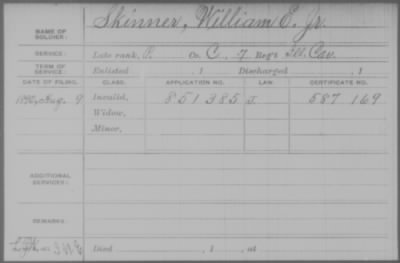 NAME OF SOLDIER: Skinner, William E. Jr.
SERVICE: Late rank, P. Co. C, 7 Reg't Ill. Cav.
TERM OF SERVICE: Enlisted , 1 Discharged , 1
DATE OF FILING. CLASS. APPLICATION NO. LAW. CERTIFICATE NO.
1890, Aug. 9 Invalid, 851385 J. 587169
Widow,
Minor,
ADDITIONAL SERVICES:
REMARKS:
Died , 1 , at